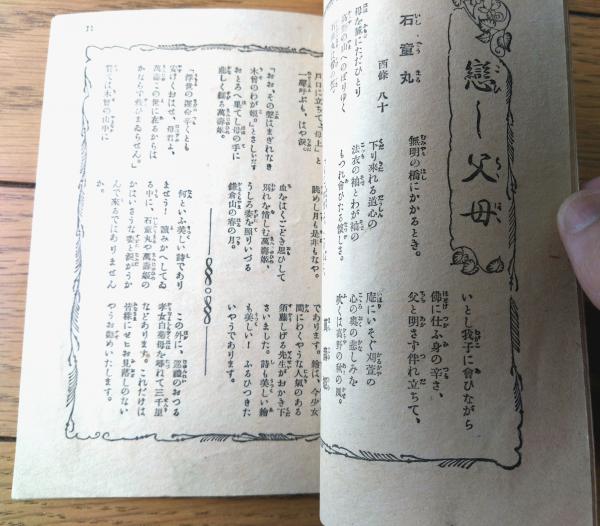 戀し父母
石童丸
西條 八十
母を麓にただひとり
高野の山へのぼりゆく
無明の橋にかかるとき。
下り來れる道心の
法衣の袖とわが袖の
もつれ會ひたる懷しさ。
いとし我子に會ひながら
佛に仕ふ身の辛さ、
父と明さず伴れ立ちて、
庵にいそぐ刈萱の
心の奧の悲しみを
吹くは高野の秋の風。
戸口に立ちて『母上』と
一聲呼ぶも、はや涙
『おお、その聲はまぎれなき
木曾のわが娘。』とさしいだす
おとろへ果てし母の手に
悲しく縋る萬壽姫。
『浮世の運命辛くとも
安けくおはせ、母君よ、
萬壽この世に在るからは
かならず救ひまゐらせん。』
眺めし月も是非もなや。
血をはくごとき思ひして
別れを惜しむ萬壽姫、
うしろ姿を照りいづる
鎌倉山の春の月。
何といふ美しい詩であり
ませう！ 讀みかへしてゐ
る中に、石童丸や萬壽姫の
かはいさうな姿と涙がうか
んで來るではありません
か。
であります。繪は、今少女
間にわくやうな人氣のある
須藤しげる先生がおかき下
さいました。詩も美しい繪
も美しい！ ふるひつきた
いやうであります。
この外に、巡禮のおつる
孝女白菊母を尋れて三千里
などあります。これだけは
皆樣にぜひお見落しのない
やうお勸めいたします。